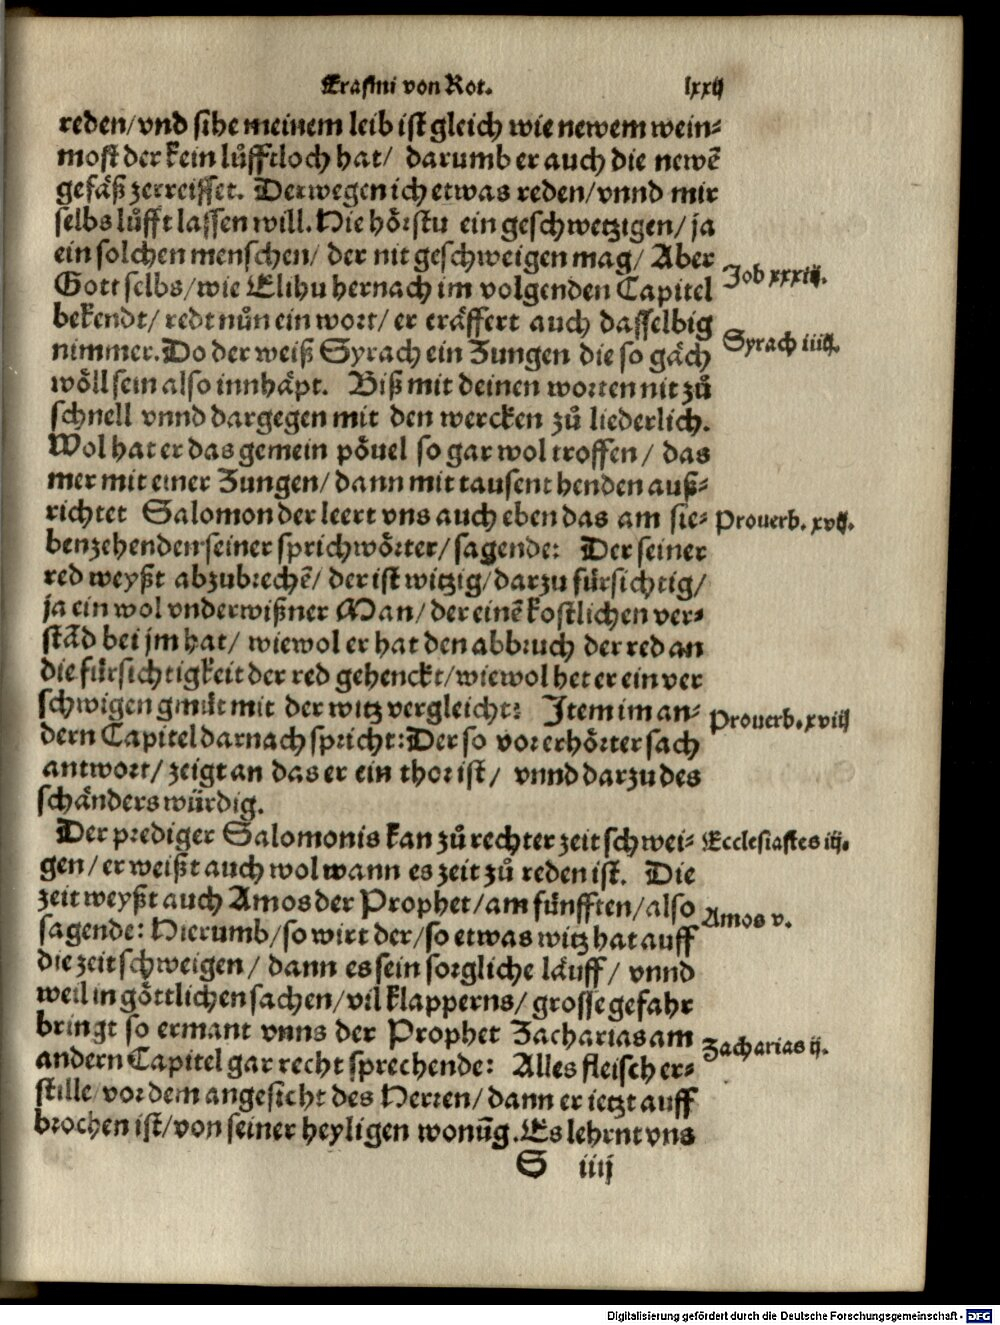 Erasmi von Rot.
lxxij
reden/vnd sihe meinem leib ist gleich wie newem wein-
most der kein lůfftloch hat/ darumb er auch die newẽ
gefäß zerreisset. Derwegen ich etwas reden/vnnd mir
selbs lůfft lassen will. Hie hörstu ein geschwetzigen/ ja
ein solchen menschen/ der nit geschweigen mag/ Aber
Gott selbs/wie Elihu hernach im volgenden Capitel
Job xxxiij.
bekendt/ redt nůn ein wort/ er eräffert auch dasselbig
nimmer. Do der weiß Syrach ein Zungen die so gäch
Syrach iiij.
wöll sein also innhäpt. Biß mit deinen worten nit zů
schnell vnnd dargegen mit den wercken zů liederlich.
Wol hat er das gemein pövel so gar wol troffen/ das
mer mit einer Zungen/ dann mit tausent henden auß-
richtet Salomon der leert vns auch eben das am sie-
Prouerb. xvij.
benzehenden seiner sprichwörter/ sagende: Der seiner
red weyßt abzubrechẽ/ der ist witzig/ darzu fürsichtig/
ja ein wol vnderwißner Man/ der einẽ kostlichen ver-
stãd bei jm hat/ wiewol er hat den abbruch der red an
die fürsichtigkeit der red gehenckt/ wiewol het er ein ver
schwigen gmüt mit der witz vergleicht: Item im an-
Prouerb. xviij
dern Capitel darnach spricht: Der so vor erhörter sach
antwort/ zeigt an das er ein thor ist/ vnnd darzu des
schänders würdig.
Der prediger Salomonis kan zů rechter zeit schwei-
Ecclesiastes iij.
gen/ er weißt auch wol wann es zeit zů reden ist. Die
zeit weyßt auch Amos der Prophet/ am fünfften/ also
Amos v.
sagende: Hierumb/ so wirt der/ so etwas witz hat auff
die zeit schweigen/ dann es sein sorgliche läuff/ vnnd
weil in göttlichen sachen/ vil klapperns/ grosse gefahr
bringt so ermant vnns der Prophet Zacharias am
Zacharias ij.
andern Capitel gar recht sprechende: Alles fleisch er-
stille vor dem angesicht des Herren/ dann er ietzt auff
brochen ist/ von seiner heyligen wonũg. Es lehrnt vns
S iiij
Digitalisierung gefördert durch die Deutsche Forschungsgemeinschaft - DFG